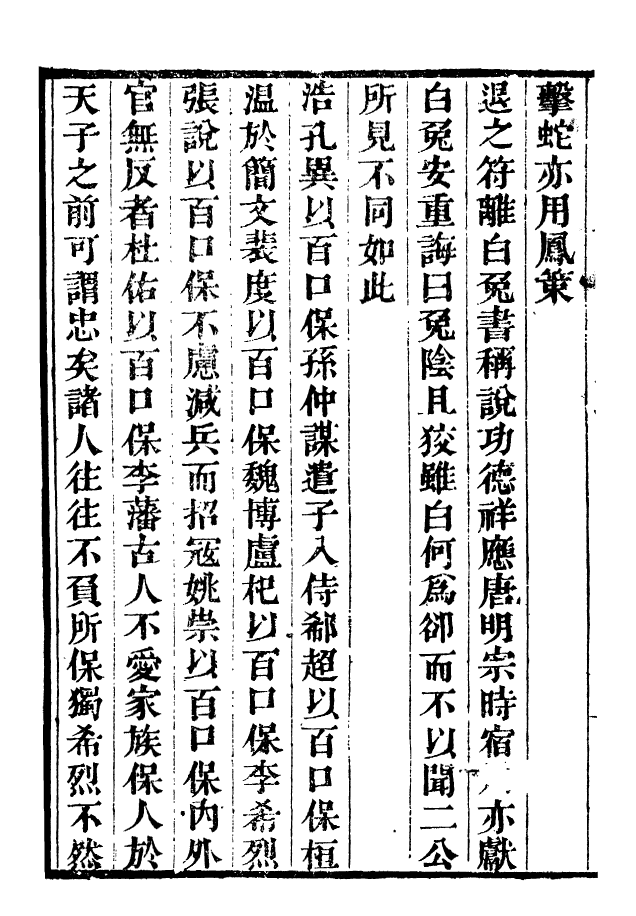 擊蛇亦用鳳策
退之符離白兔書稱說功德祥應唐明宗時宿亦獻
白兔安重誨曰兔陰且狡雖白何為卻而不以聞二公
所見不同如此
浩孔異以百口保孫仲謀遣子入侍郗超以百口保桓
温於簡文裴度以百口保魏博盧杞以百口保李希烈
張說以百口保不慮減兵而招冦姚崇以百口保内外
官無反者杜佑以百口保李藩古人不愛家族保人於
天子之前可謂忠矣諸人往往不負所保獨希烈不然